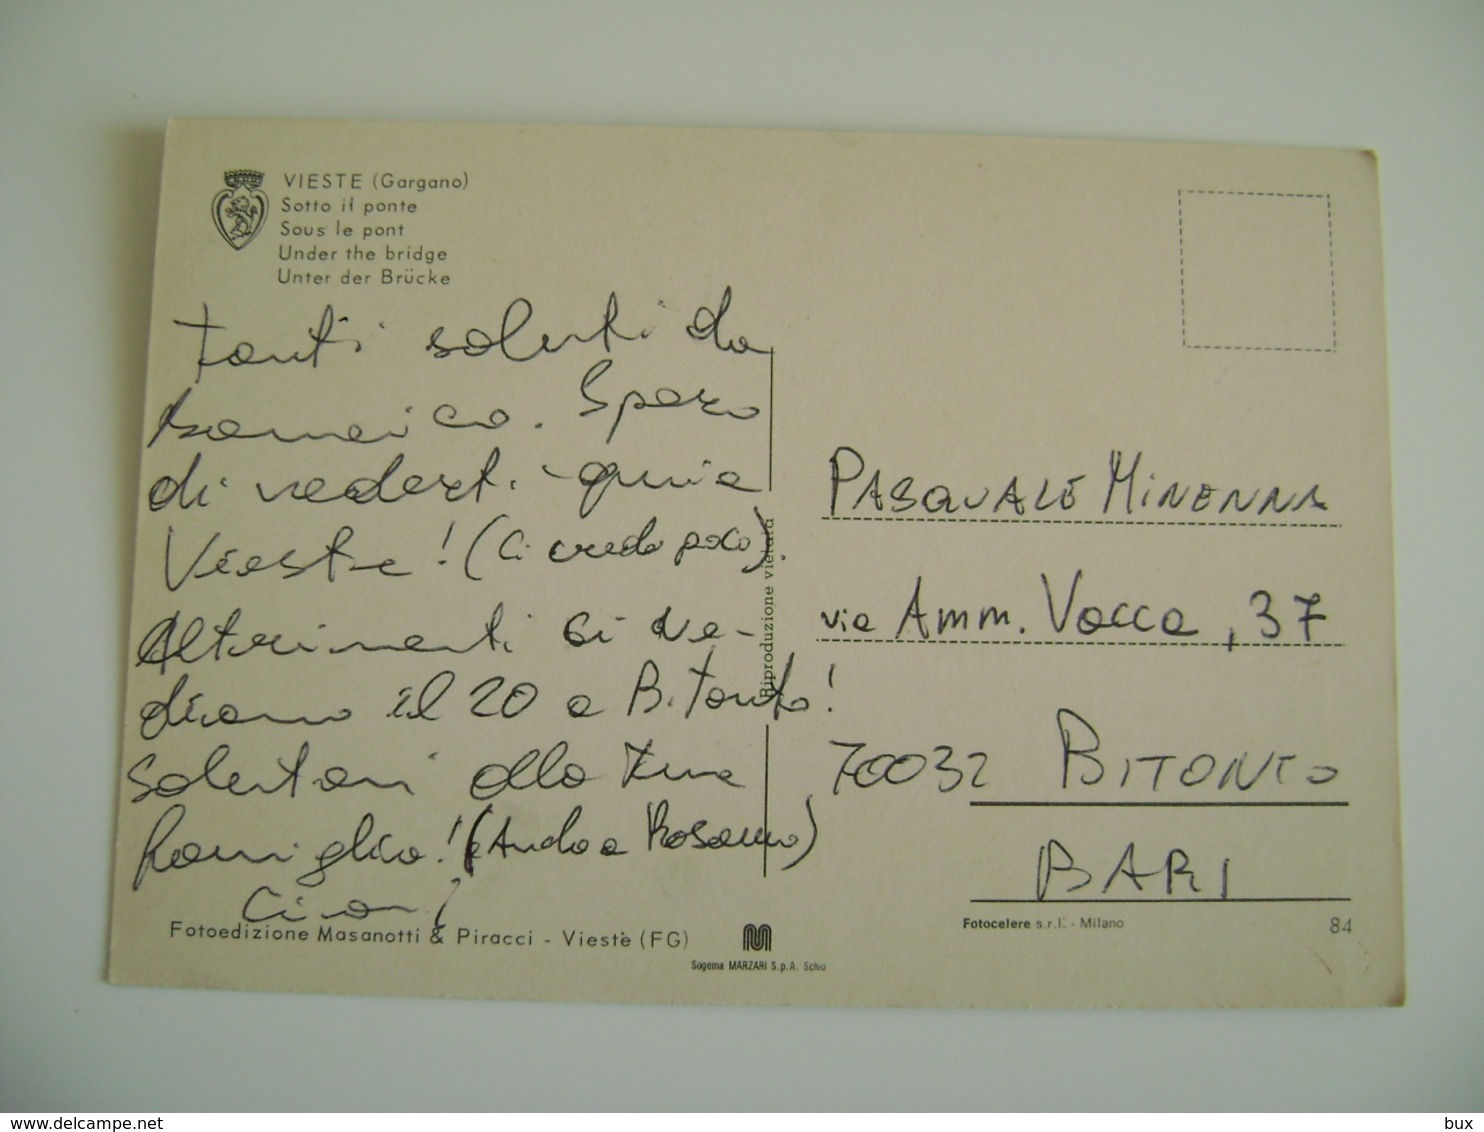 VIESTE (Gargano)
Sotto il ponte
Sous le pont
Under the bridge
Unter der Brücke
Tanti saluti da
. Spero
di vederti qui a
Vieste! (Ci credo poco).
Altrimenti ci ve-
diamo il 20 a Bitonto!
Saluta alla tua
famiglia! (Anche a Rosanna)
Ciao!
Riproduzione vietata
PASQUALE MINENNA
via Amm. Vacca, 37
70032 BITONTO
BARI
Fotoedizione Masanotti & Piracci - Vieste (FG)
Sogema MARZARI S.p.A. Schio
Fotocelere s.r.l. - Milano
84
delcampe.net
bux